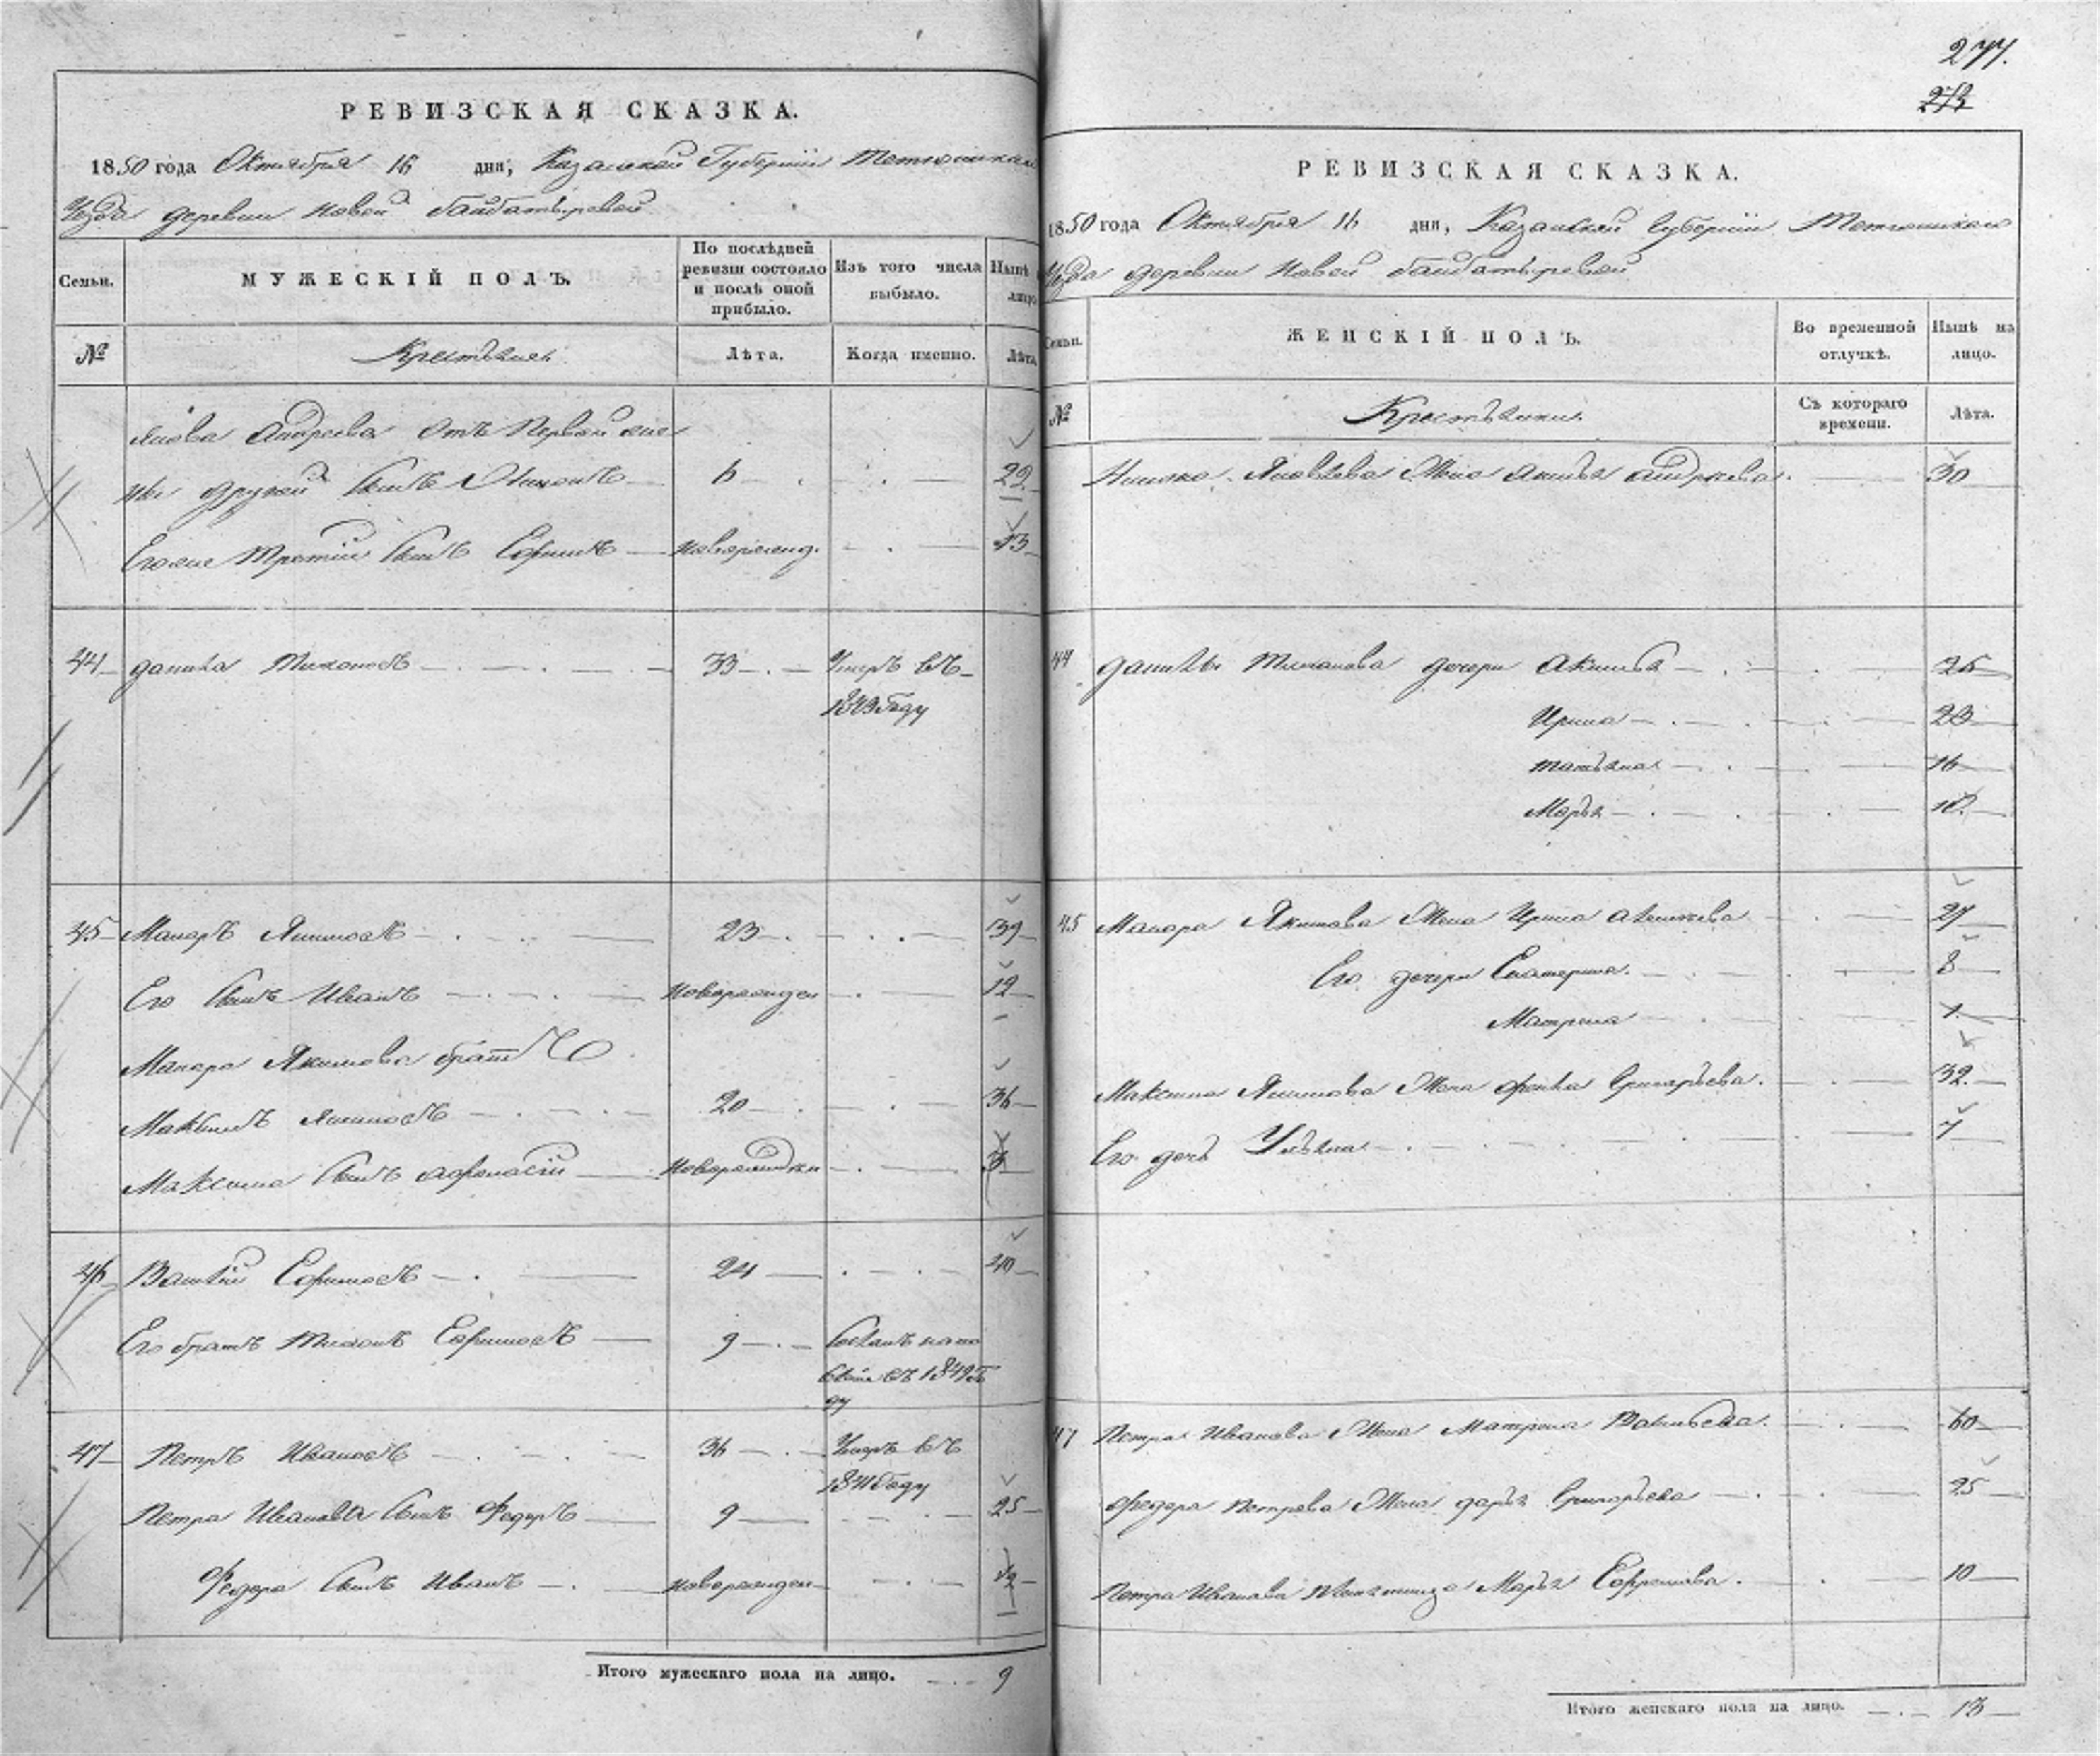 РЕВИЗСКАЯ СКАЗКА.
1850 года Октября 16 дня, Казанской Губернии Тетюшскаго
Уезда деревни Новой Байбатыревой
Семьи.
МУЖЕСКІЙ ПОЛЪ.
По послѣдней ревизіи состояло и послѣ оной прибыло.
Изъ того числа выбыло.
Нынѣ лицо
№
Крестьяне
Лѣта.
Когда именно.
Лѣта
Андреева Отъ Первой же
ны другой сынъ 6 22
Его же третій сынъ Ефимъ новорожд. 13
44 Данила Тихоновъ 33 Умеръ въ
1843 году
45 Макаръ Якимовъ 23 39
Его сынъ Иванъ новорожден 12
Макара Якимова братъ
Максимъ Якимовъ 20 36
Максима сынъ Афонасій новорожден
46 Василій Ефимовъ 24 40
Его братъ Тихонъ Ефимовъ 9 Сосланъ на по
въ 1849 го
ду
47 Петръ Ивановъ 36 Умеръ въ
1841 году
Петра Иванова сынъ Федоръ 9 25
Федора сынъ Иванъ новорожден
Итого мужескаго пола на лицо. 9
277.
РЕВИЗСКАЯ СКАЗКА.
1850 года Октября 16 дня, Казанской Губерніи Тетюшскаго
Уезда деревни Новой Байбатыревой
Семьи.
ЖЕНСКІЙ ПОЛЪ.
Во временной отлучкѣ.
Нынѣ на лицо.
№
Крестьянки
Съ котораго времени.
Лѣта.
Яковлева Жена Андреева 30
44 Данилы Тихонова дочери Акилина 26
Ирина 23
Татьяна 16
Марья 10
45 Макара Якимова Жена Ирина Алексеева 27
Его дочери Екатерина 8
Матрена 1
Максима Якимова Жена Фекла Григорьева 32
Его дочь Ульяна 7
47 Петра Иванова Жена Матрена Васильева 60
Федора Петрова Жена Дарья Григорьева 25
Петра Иванова племянница Марья Ефремова 10
Итого женскаго пола на лицо. 13